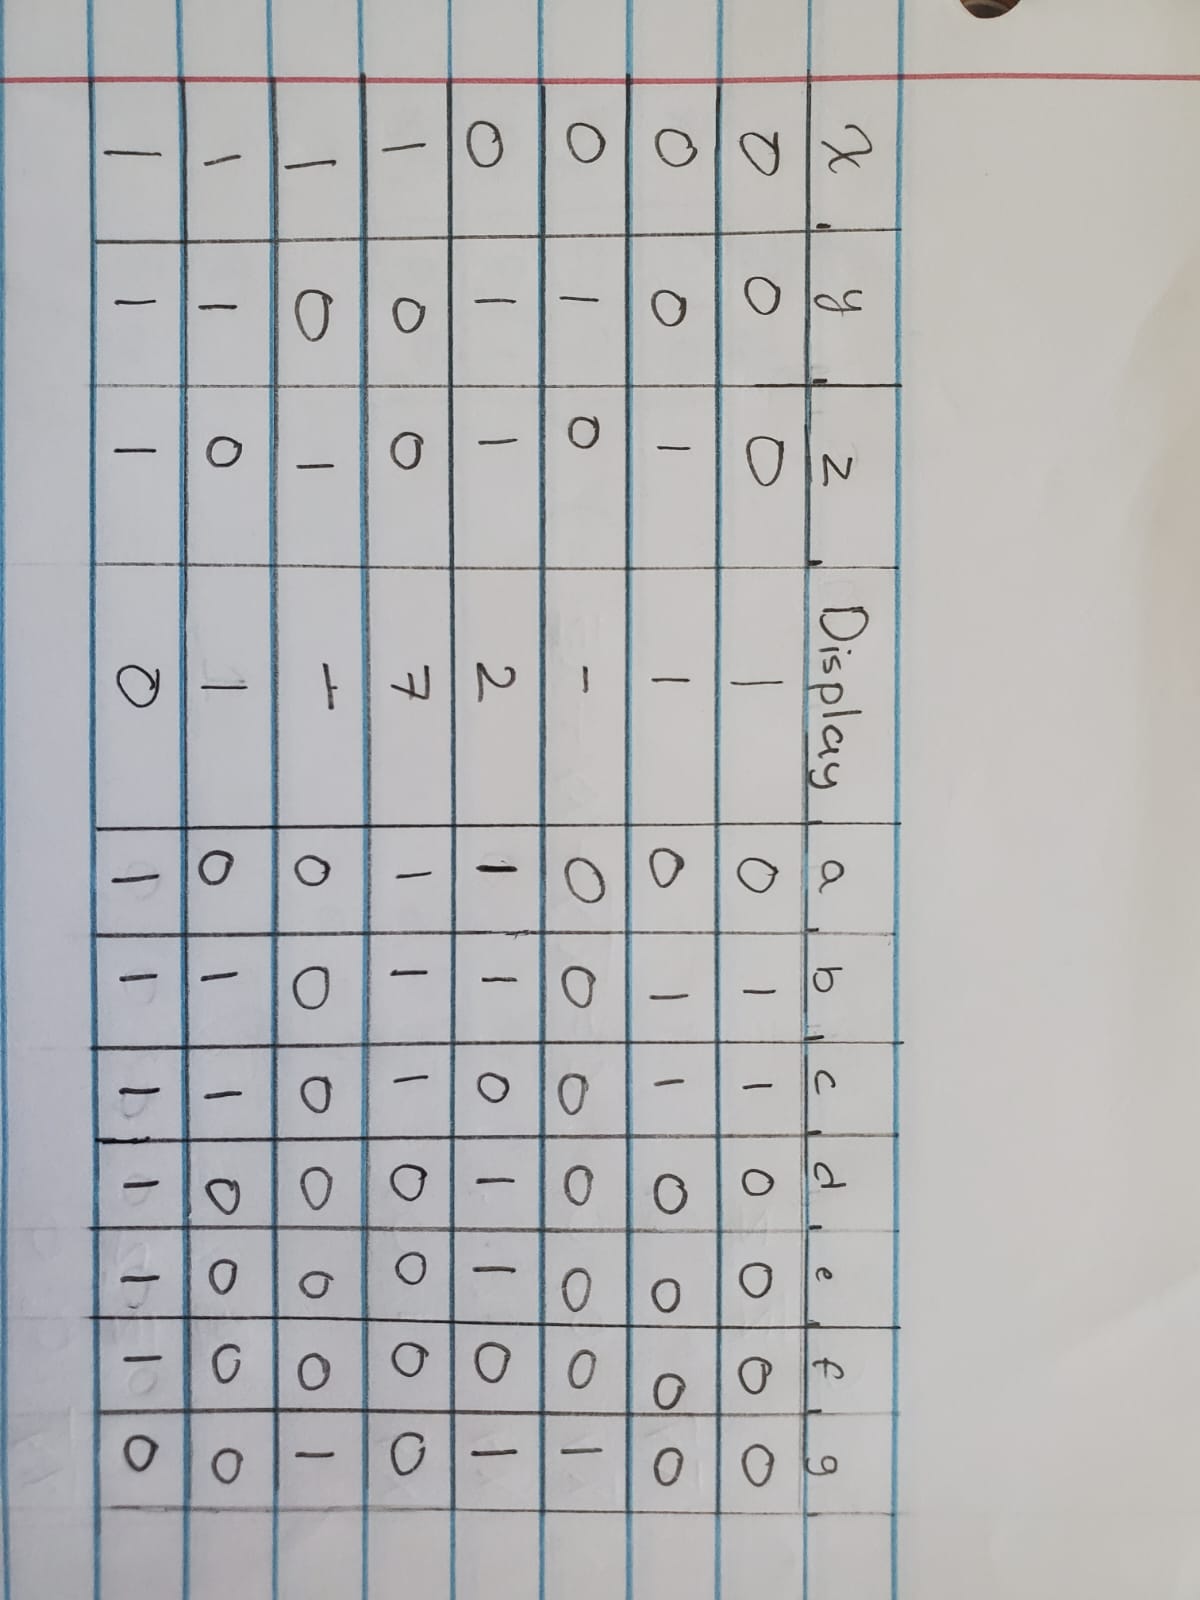 x y z Display a b c d e f g
0 0 0 1 0 1 1 0 0 0 0
0 0 1 1 0 1 1 0 0 0 0
0 1 0 - 0 0 0 0 0 0 1
0 1 1 2 1 1 0 1 1 0 1
1 0 0 7 1 1 1 0 0 0 0
1 0 1 0 0 0 0 0 0 1
1 1 0 1 0 1 1 0 0 0 0
1 1 1 0 1 1 1 1 1 1 0